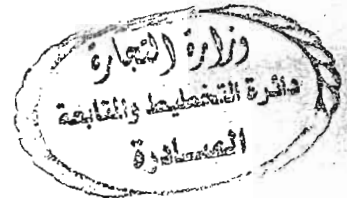 وزارة التجارة
دائرة التخطيط والمتابعة
الصادرة